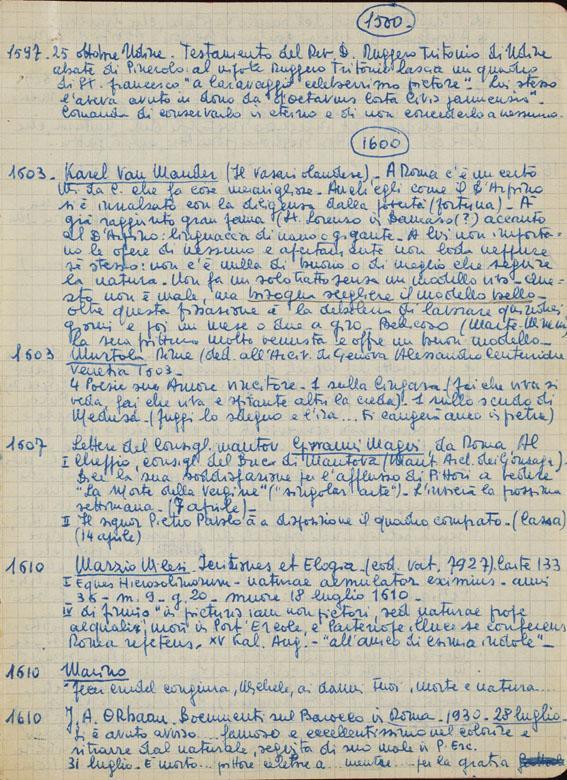 1500.
1597. 25 ottobre Udine. Testamento del Rev. D. Ruggero Tritonio di Udine
abate di Pinerolo: al nipote Ruggero Tritonio lascia un quadro
di St. Francesco "a Caravaggio celeberrimo pictore". Lui stesso
l'aveva avuto in dono da "Octavius Costa Civis januensis".
Comanda di conservarlo in eterno e di non concederlo a nessuno.
1600
1603. Karel Van Mander (Il Vasari olandese). A Roma c'è un certo
M. da C. che fa cose meravigliose. Anch'egli come il D'Arpino
si è innalzato con la diligenza dalla povertà (fortuna). A
già raggiunto gran fama (St. Lorenzo in Damaso (?) accanto
al D'Arpino: linguaccia di nano o gigante. A lui non importa-
no le opere di nessuno e apertamente non loda neppure
se stesso: non c'è nulla di buono o di meglio che seguire
la natura. Non fa un solo tratto senza un modello vivo. Que-
sto non è male, ma bisogna scegliere il modello bello.
oltre questa
giorni e poi un mese o due a giro.
la sua pittura molto venusta e offre un buon modello.
1603 Murtola Rime (ded. all'Arciv. di Genova Alessandro Centurione
Venetia 1603.
4 Poesie sur Amore vincitore. 1 sulla Cingara (fai che viva si
veda, fai che viva e spirante altri la creda). 1 sullo scudo di
Medusa. (fuggi lo sdegno e l'ira ... ti cangerà anco in pietra)
1607 Lettere del Consigl. mantov. Giovanni Magni, da Roma Al
I Chieppio, consigl. del Duca di Mantova (Mant. Arch. dei Gonzaga).
Dice la sua soddisfazione per l'afflusso di Pittori a vedere
"La Morte della Vergine" ("singolar arte"). L'invierà la prossima
settimana. (7 aprile).
II Il signor Pietro Paolo à a disposizione il quadro comprato. (Cassa)
(14 aprile)
1610 Marzio Milesi Iscritiones et Elogia. (cod. Vat. 7927). Carte 133
I Eques Hierosolimorum - naturae aemulator eximius - anni
36 - m. 9 - g. 20 - muore 18 luglio 1610.
IV "in picturis iam non pictori, sed naturae prope
aequalis, morì in Port'Ercole, e Partenope illuc se conferens
Roma repetens, XV Kal. Aug. - "all'amico di esimia indole".
1610 Marino
"Fecer crudel congiura, Michele, ai danni tuoi, morte e natura....
1610 J. A. Orbaan. Documenti sul Barocco in Roma. 1930. 28 luglio.
Si è avuto avviso ... famoso e eccellentissimo nel colorire e
ritrarre dal naturale, seguita di suo male in P. Erc.
31 luglio. È morto ... pittore celebre a ... mentre ... per la gratia